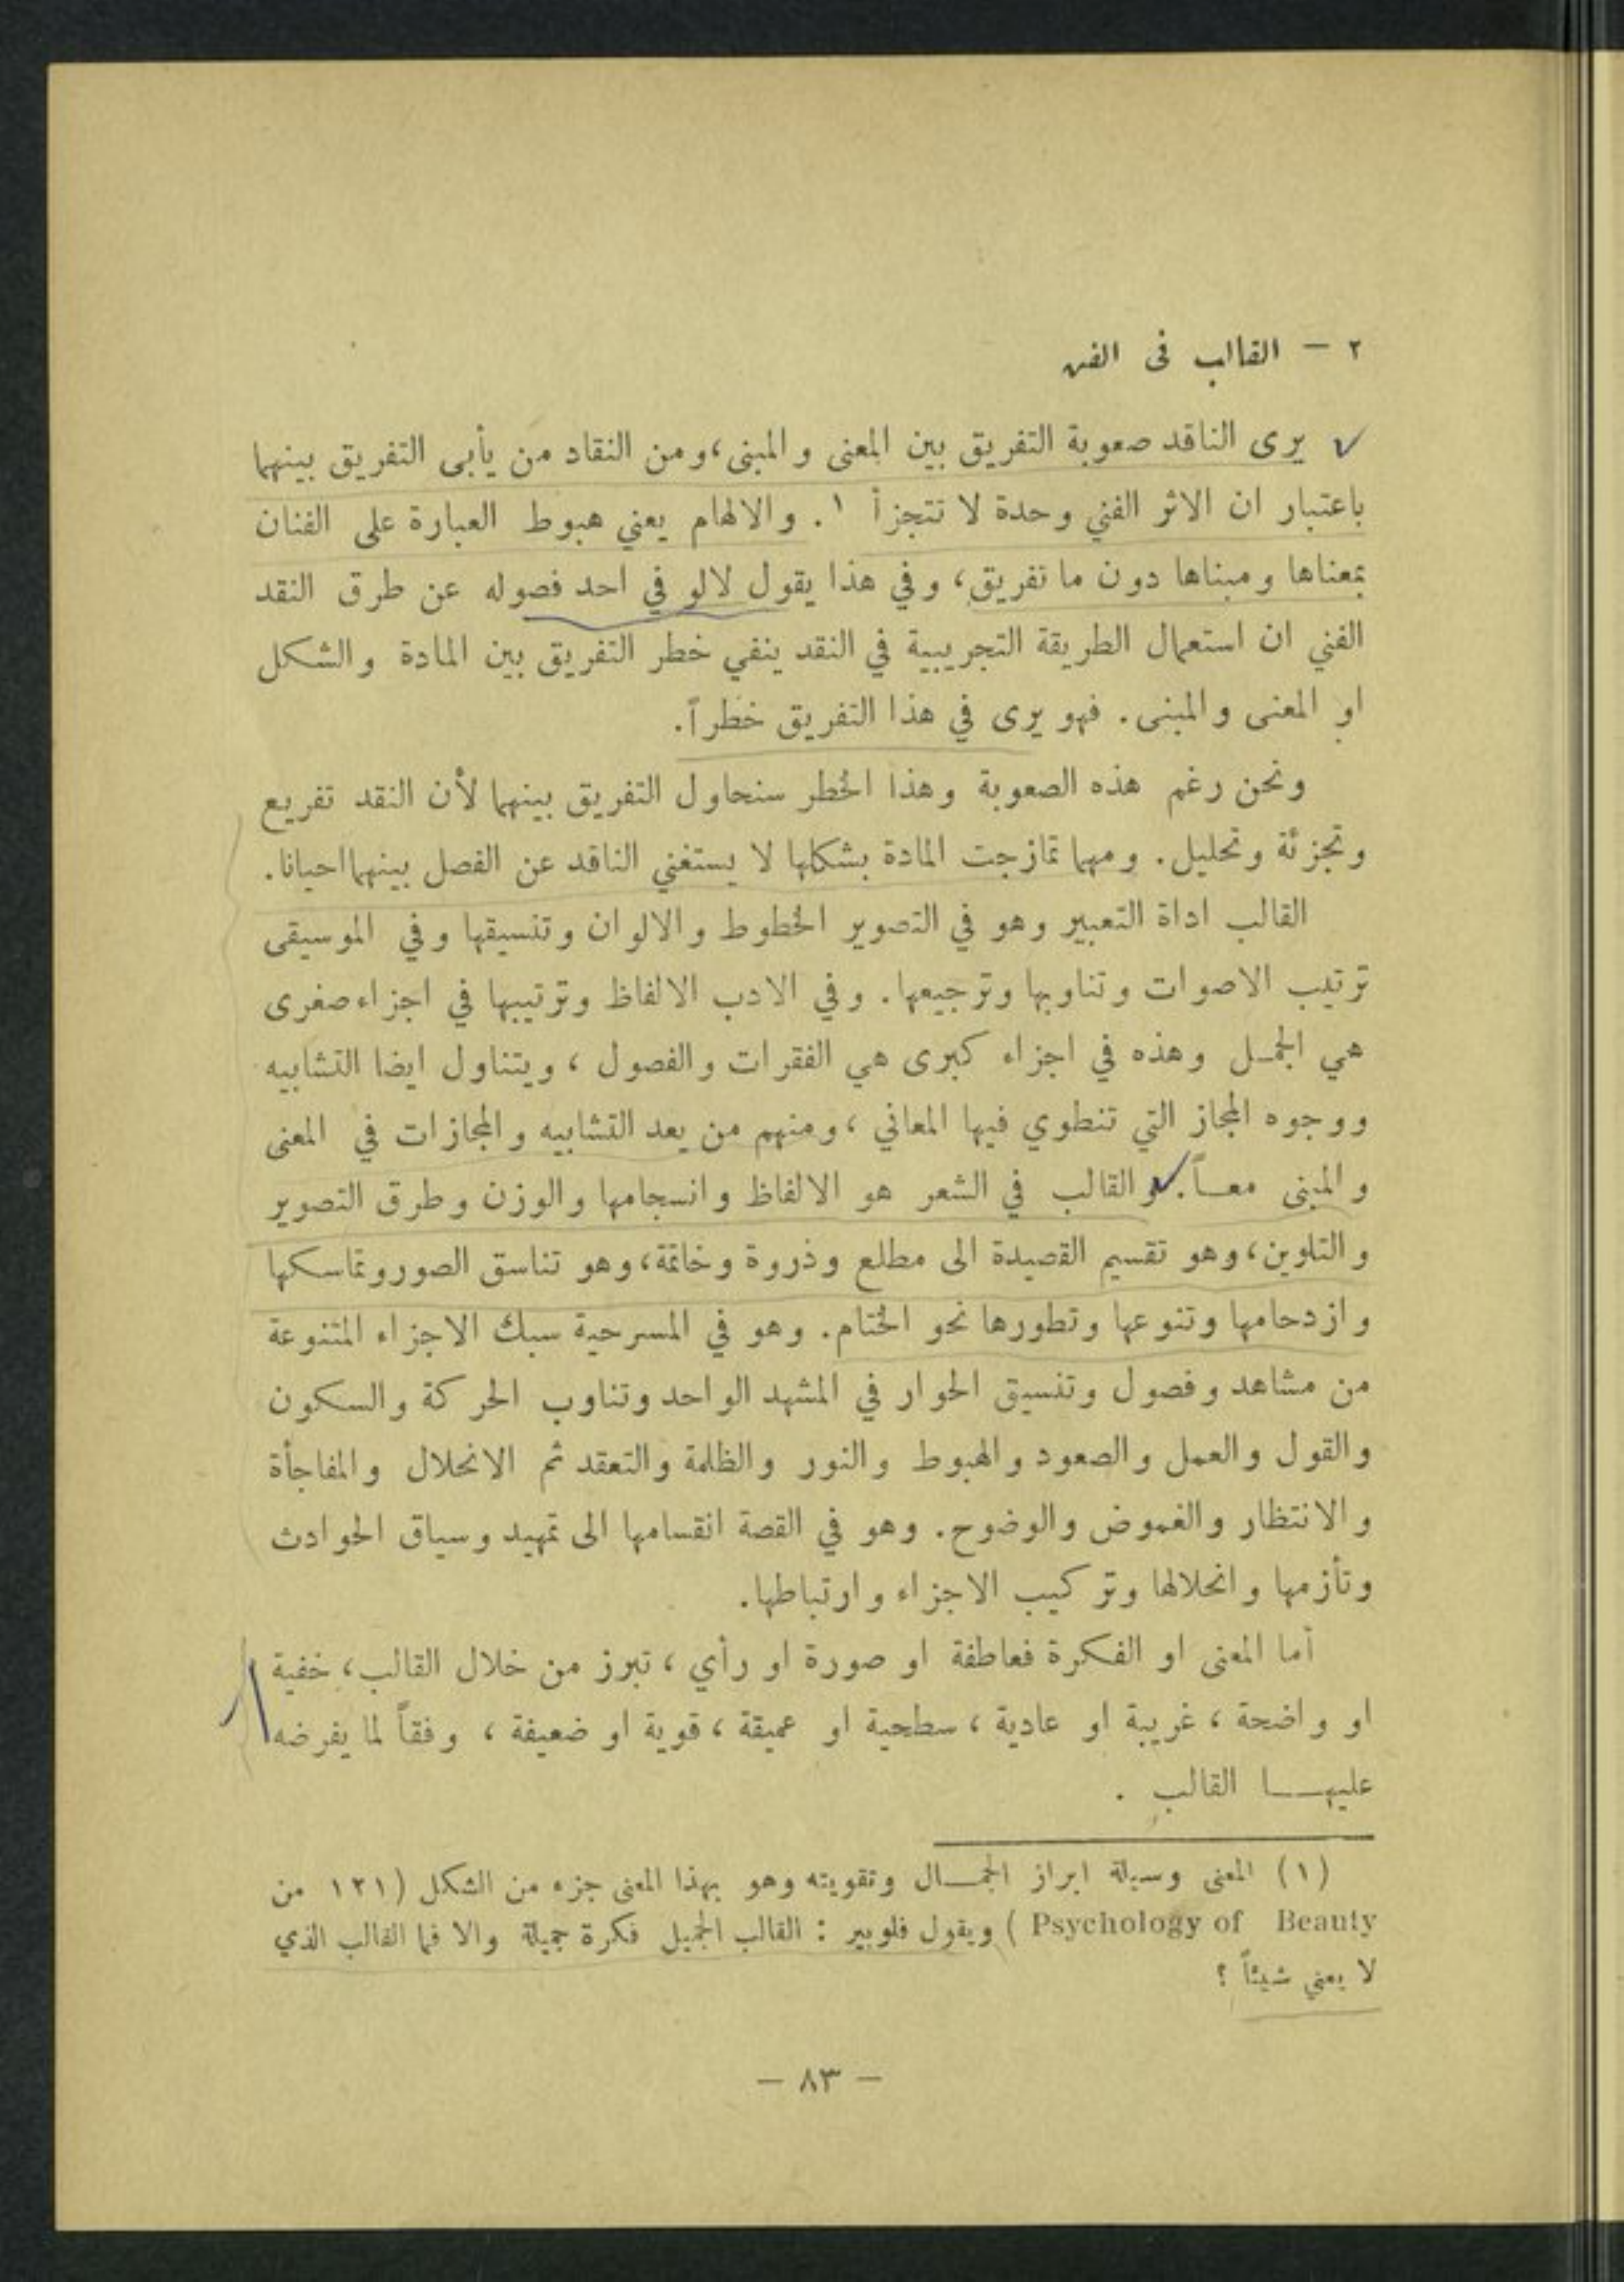 ٢ – القالب في الفن
يرى الناقد صعوبة التفريق بين المعنى والمبنى، ومن النقاد من يأبى التفريق بينهما
باعتبار ان الاثر الفني وحدة لا تتجزأ ١. والالهام يعني هبوط العبارة على الفنان
بمعناها ومبناها دون ما تفريق، وفي هذا يقول لالو في احد فصوله عن طرق النقد
الفني ان استعمال الطريقة التجريبية في النقد ينفي خطر التفريق بين المادة والشكل
او المعنى والمبنى. فهو يرى في هذا التفريق خطراً.
ونحن رغم هذه الصعوبة وهذا الخطر سنحاول التفريق بينهما لأن النقد تفريع
وتجزئة وتحليل. ومهما تمازجت المادة بشكلها لا يستغني الناقد عن الفصل بينهما احيانا.
القالب اداة التعبير وهو في التصوير الخطوط والالوان وتنسيقها وفي الموسيقى
ترتيب الاصوات وتناوبها وترجيعها. وفي الادب الالفاظ وترتيبها في اجزاء صغرى
هي الجمل وهذه في اجزاء كبرى هي الفقرات والفصول، ويتناول ايضا التشابيه
ووجوه المجاز التي تنطوي فيها المعاني، ومنهم من يعد التشابيه والمجازات في المعنى
والمبنى معاً. والقالب في الشعر هو الالفاظ وانسجامها والوزن وطرق التصوير
والتلوين، وهو تقسيم القصيدة الى مطلع وذروة وخاتمة، وهو تناسق الصور وتماسكها
وازدحامها وتنوعها وتطورها نحو الختام. وهو في المسرحية سبك الاجزاء المتنوعة
من مشاهد وفصول وتنسيق الحوار في المشهد الواحد وتناوب الحركة والسكون
والقول والعمل والصعود والهبوط والنور والظلمة والتعقد ثم الانحلال والمفاجأة
والانتظار والغموض والوضوح. وهو في القصة انقسامها الى تمهيد وسياق الحوادث
وتأزمها وانحلالها وتركيب الاجزاء وارتباطها.
أما المعنى او الفكرة فعاطفة او صورة او رأي، تبرز من خلال القالب، خفية
او واضحة، غريبة او عادية، سطحية او عميقة، قوية او ضعيفة، وفقاً لما يفرضه
عليهـــا القالب .
(١) المعنى وسيلة ابراز الجمـــال وتقويته وهو بهذا المعنى جزء من الشكل (١٢١ من
Psychology of Beauty ) ويقول فلوبير : القالب الجميل فكرة جميلة والا فما القالب الذي
لا يعني شيئاً ؟
– ٨٣ –